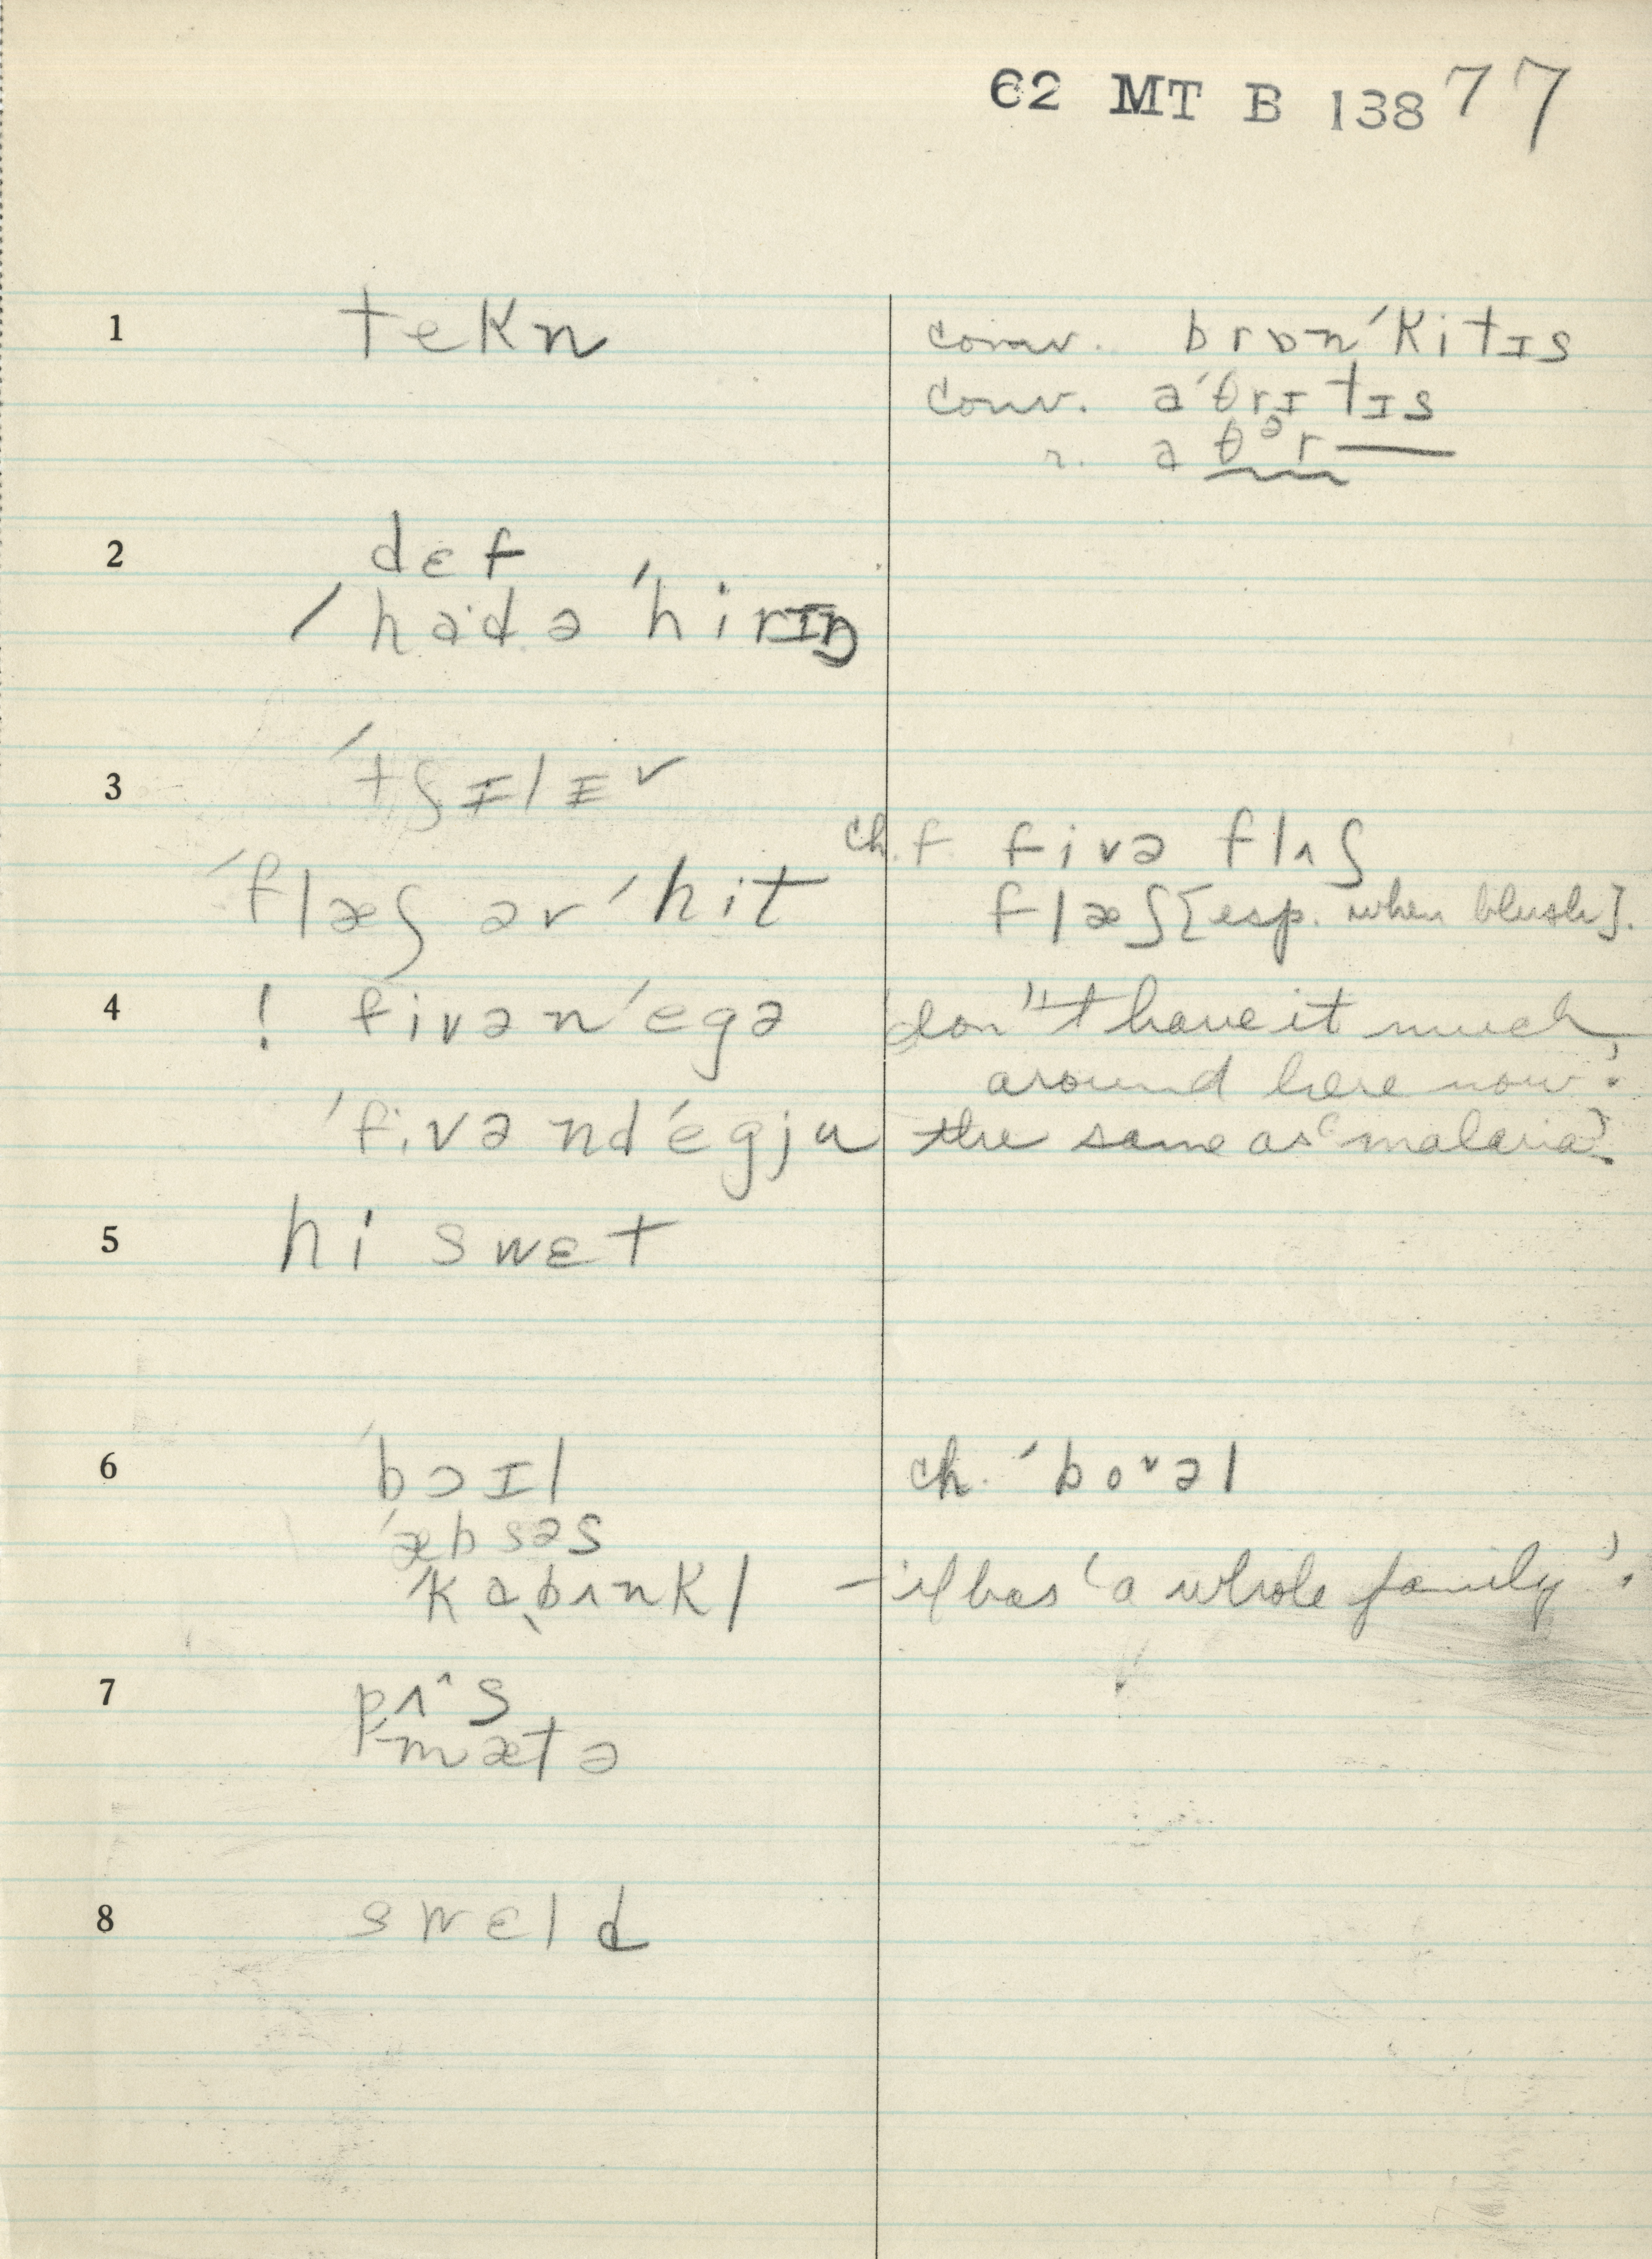 62 MT B 138 77
1 tekn conv. brɒn´kitɪs
conv. a´θrɪtɪs
r. aθᵊr—
2 dɛf
/ had ə ´hirɪŋ
3 ´tʃɪlɪ˅
ch. f fivə flʌʃ
´flæʃ əv ´hit flæʃ [esp. when blush].
4 ! fivən´egə don't have it much
around here now'.
´fivənd´egju the same as 'malaria'.
5 hi swɛt
6 ´bɔɪl ch. ´boᵛəl
´æbsəs
´ka͵bʌnkl – it has 'a whole family'.
7 pʌ^s
´mætə
8 swɛld